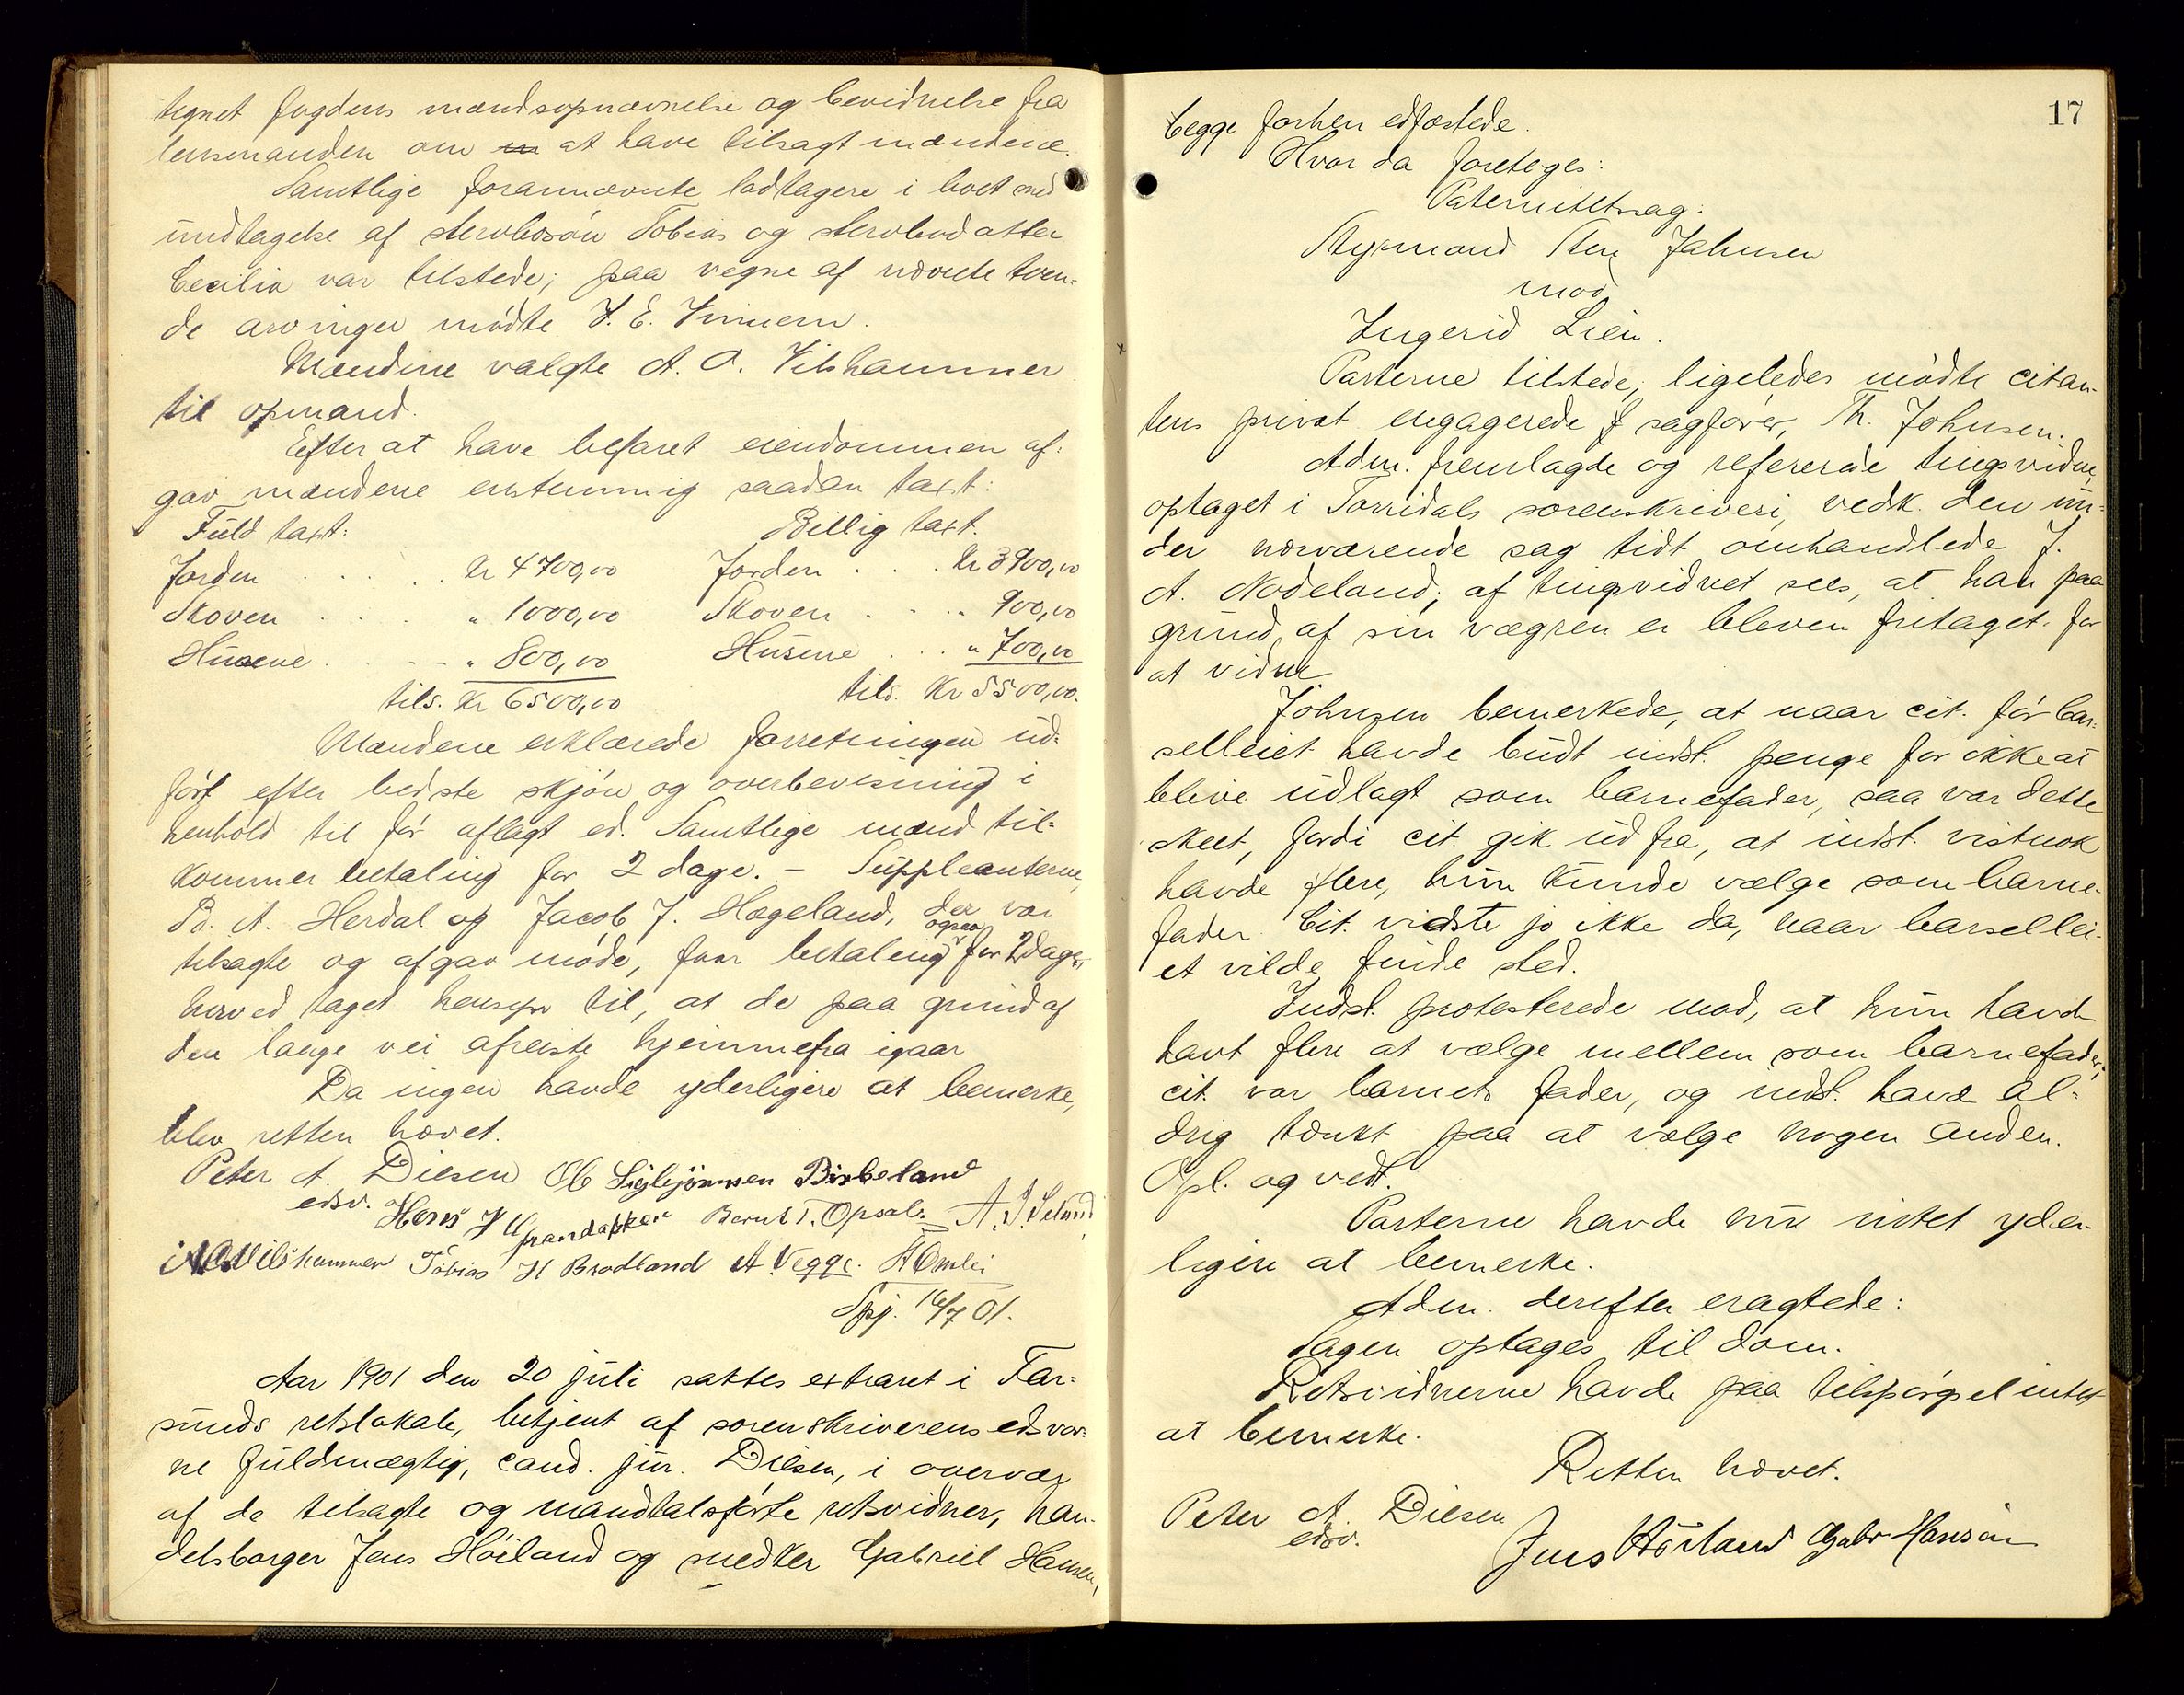 tegnet fogdens mandsopnævnelse og bevidnelse fra
lensmanden om at have tilsagt mændene.
Samtlige forannævnte lodtagere i boet med
undtagelse af stervbosøn Tobias og stervbodatter
Cecilia var tilstede; paa vegne af nævnte tven-
de arvinger mødte J. E. Vinnem.
Mændene valgte A. O. Vilshammer
til opmand.
Efter at have befaret eiendommen af-
gav mændene enstemmig saadan taxt:
Fuld taxt: Billig taxt.
Jorden . . . . . Kr 4700,00 Jorden . . . Kr 3900,00
Skoven . . . . " 1000,00 Skoven . . . " 900,00
Husene . . . . " 800,00 Husene . . . " 700,00
tils. Kr 6500,00 tils. Kr 5500,00.
Mændene erklærede forretningen ud-
ført efter bedste skjøn og overbevisning i
henhold til før aflagt ed. Samtlige mænd til-
kommer betaling for 2 dage. – Suppleanterne,
B. A. Herdal og Jacob J. Hægeland, der var
tilsagte og afgav møde, faar betaling ogsaa for 2 dage,
herved taget hensyn til, at de paa grund af
den lange vei afreiste hjemmefra igaar
Da ingen havde yderligere at bemerke,
blev retten hævet.
Peter A. Diesen Ole Sigbjörnsen Birkeland
edsv. Hans J Bernt T. Opsal. A. J.
A O Vilshammer Tobias H Brodland A Vegge. A Omlei
Spj. 16/7 01.
Aar 1901 den 20 juli sattes extraret i Far-
sunds retslokale, betjent af sorenskriverens edsvor-
ne fuldmægtig, cand. jur. Diesen, i overvær
af de tilsagte og mandtalsførte retsvidner, han-
delsborger Jens Höiland og snedker Gabriel Hansen,
17
begge forhen edfæstede.
Hvor da foretoges:
Paternitetssag:
Styrmand Sten Jahnsen
mod
Ingerid Lien.
Parterne tilstede; ligeledes mødte citan-
tens privat engagerede sagfører, Th. Johnsen.
Adm. fremlagde og refererede tingsvidne,
optaget i Torridals sorenskriveri, vedk. den un-
der nærværende sag tidt omhandlede J.
A. Nodeland; af tingsvidnet sees, at han paa
grund af sin vægren er bleven fritaget for
at vidne
Johnsen bemerkede, at naar cit. før bar-
selleiet havde budt indst. penge for ikke at
blive udlagt som barnefader, saa var dette
skeet, fordi cit. gik ud fra, at indst. vistnok
havde flere, hun kunde vælge som barne-
fader. Cit. vidste jo ikke da, naar barsellei-
et vilde finde sted.
Indst. protesterede mod, at hun havde
havt flere at vælge mellem som barnefader;
cit. var barnets fader, og indst. havde al-
drig tænkt paa at vælge nogen anden.
Opl. og vedt.
Parterne havde nu intet yder-
ligere at bemerke.
Adm. derefter eragtede:
Sagen optages til dom.
Retsvidnerne havde paa tilspørgsel intet
at bemerke.
Retten hævet.
Peter A. Diesen
edsv. Jens Höiland Gabr Hansen